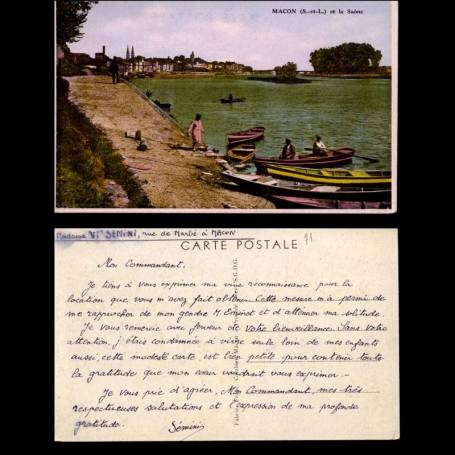 MACON (S.-et-L.) et la Saône
Madame Vve SEMINI, rue de Marbé à MACON
CARTE POSTALE 71
Mon Commandant,
Je tiens à vous exprimer ma vive reconnaissance pour la
location que vous m'avez fait obtenir. Cette mesure m'a permis de
me rapprocher de mon gendre M. et d'atténuer ma solitude.
Je vous remercie avec ferveur de votre bienveillance. Sans votre
attention, j'étais condamnée à vivre seule loin de mes enfants
aussi, cette modeste carte est bien petite pour contenir toute
la gratitude que mon cœur voudrait vous exprimer –
Je vous prie d'agréer, Mon Commandant, mes très
respectueuses salutations et l'expression de ma profonde
gratitude. Sémini